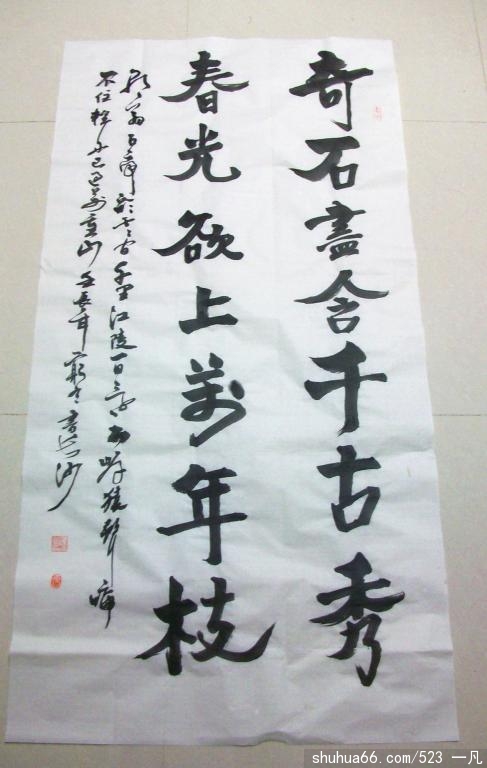 奇石盡含千古秀
春光欲上萬年枝
朝辞白帝彩云间千里江陵一日还两岸猿聲啼
不住轻舟已过萬重山壬辰年書沙
shuhua66.com/523 一凡